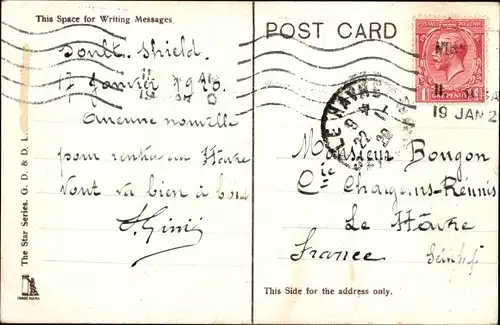 This Space for Writing Messages.
Soult. Shield.
17 Janvier 1920.
Aucune nouvelle
pour rentrer au Havre
Tout va bien à bord
The Star Series. G. D. & D. L.
TRADE MARK
POST CARD
1
19 JAN 2
LE HAVRE
Monsieur Bougon
Cie Chargeurs-Réunis
Le Hâvre
France
This Side for the address only.